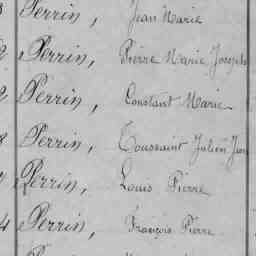 Perrin, Jean Marie
Perrin, Pierre Marie Joseph
Perrin, Constant Marie
Perrin, Toussaint Julien Jean
Perrin, Louis Pierre
4 Perrin, François Pierre